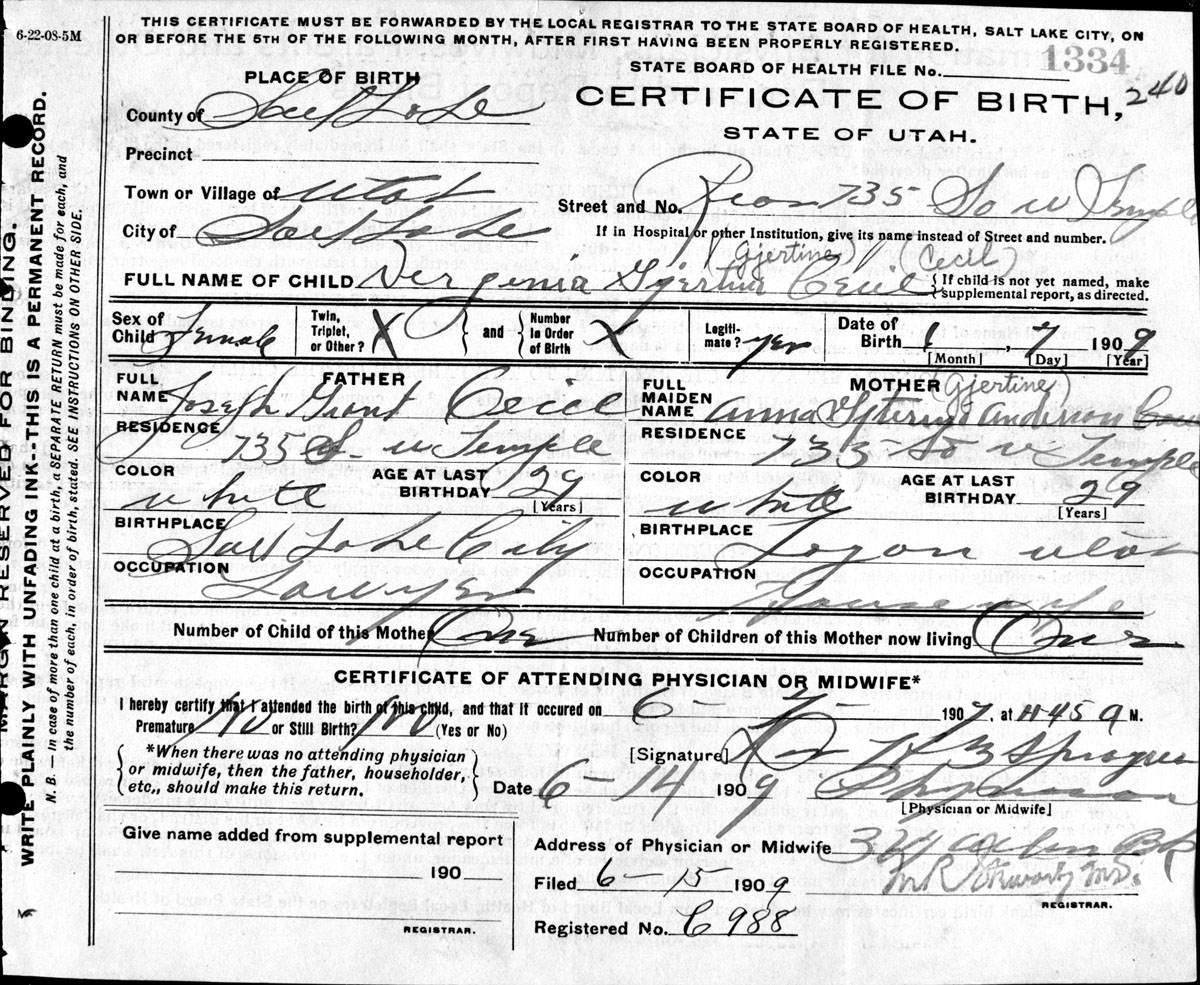 6-22-08-5M
THIS CERTIFICATE MUST BE FORWARDED BY THE LOCAL REGISTRAR TO THE STATE BOARD OF HEALTH, SALT LAKE CITY, ON
OR BEFORE THE 5TH OF THE FOLLOWING MONTH, AFTER FIRST HAVING BEEN PROPERLY REGISTERED.
STATE BOARD OF HEALTH FILE No. 1334
240
PLACE OF BIRTH
CERTIFICATE OF BIRTH,
STATE OF UTAH.
County of Salt Lake
Precinct
Town or Village of Utah
Street and No. 735 So W Temple
City of Salt Lake
If in Hospital or other Institution, give its name instead of Street and number.
(Gjertine) (Cecil)
FULL NAME OF CHILD Verginia Gjertine Cecil { If child is not yet named, make
supplemental report, as directed.
Sex of Child Female
Twin, Triplet, or Other? X
and
Number in Order of Birth X
Legitimate? yes
Date of Birth 6, 7 1909
[Month] [Day] [Year]
FATHER
FULL NAME Joseph Grant Cecil
RESIDENCE
735 So W Temple
COLOR white
AGE AT LAST BIRTHDAY 29
[Years]
BIRTHPLACE
Salt Lake City
OCCUPATION
Lawyer
MOTHER (Gjertine)
FULL MAIDEN NAME Anna Anderson
RESIDENCE
735 So W Temple
COLOR white
AGE AT LAST BIRTHDAY 29
[Years]
BIRTHPLACE
Logan Utah
OCCUPATION
Housewife
Number of Child of this Mother One Number of Children of this Mother now living One
CERTIFICATE OF ATTENDING PHYSICIAN OR MIDWIFE*
I hereby certify that I attended the birth of this child, and that it occured on 6 7 1909, at M.
Premature No or Still Birth? No (Yes or No)
*When there was no attending physician
or midwife, then the father, householder,
etc,, should make this return.
[Signature] Sprague
Date 6 14 1909 Physician
[Physician or Midwife]
Give name added from supplemental report
190
REGISTRAR.
Address of Physician or Midwife
Filed 6-15 1909
REGISTRAR.
Registered No. 6988
MARGIN RESERVED FOR BINDING.
WRITE PLAINLY WITH UNFADING INK--THIS IS A PERMANENT RECORD.
N. B. — in case of more than one child at a birth, a SEPARATE RETURN must be made for each, and
the number of each, in order of birth, stated. SEE INSTRUCTIONS ON OTHER SIDE.